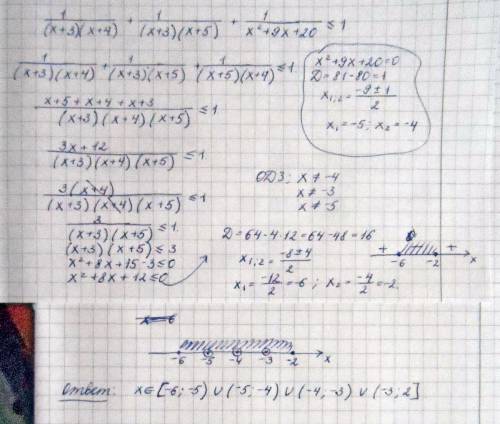 1/((x+3)(x+4)) + 1/((x+3)(x+5)) + 1/(x²+9x+20) ≤ 1
1/((x+3)(x+4)) + 1/((x+3)(x+5)) + 1/((x+5)(x+4)) ≤ 1
x²+9x+20=0
D=81-80=1
x₁,₂ = (-9±1)/2
x₁=-5; x₂=-4
(x+5+x+4+x+3)/((x+3)(x+4)(x+5)) ≤ 1
(3x+12)/((x+3)(x+4)(x+5)) ≤ 1
3(x+4)/((x+3)(x+4)(x+5)) ≤ 1
ОДЗ: x≠-4
x≠-3
x≠-5
3/((x+3)(x+5)) ≤ 1
(x+3)(x+5) ≤ 3
x²+8x+15-3≤0
x²+8x+12≤0
D=64-4·12=64-48=16
x₁,₂ = (-8±4)/2
x₁ = -12/2 = -6; x₂ = -4/2 = -2
+ +
-6 -2 x
-6 -5 -4 -3 -2 x
Ответ: x∈[-6;-5)∪(-5;-4)∪(-4;-3)∪(-3;2]